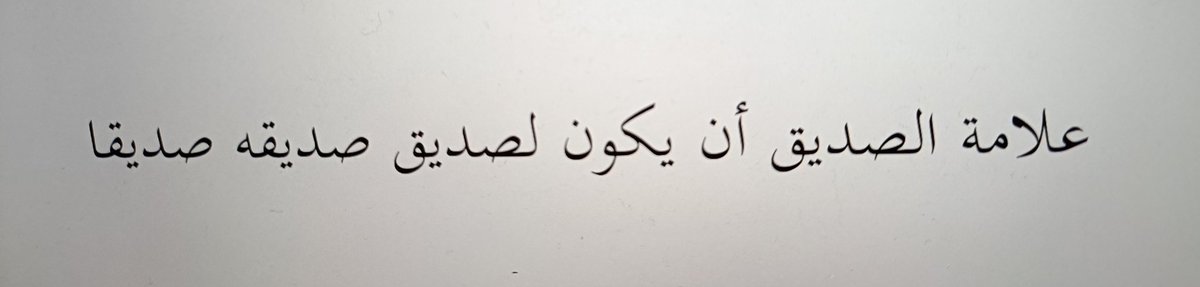 علامة الصديق أن يكون لصديق صديقه صديقا